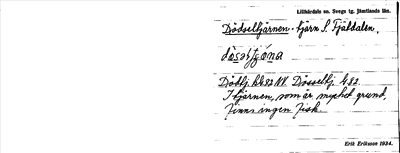 Lillhärdals sn. Svegs tg. Jämtlands län.
Dödseltjärnen - tjärn S. Fjäldalen,
Dödtj. bl 82 NV. Dösseltj. 482
I tjärnen, som är mycket grund,
finns ingen fisk.
Erik Eriksson 1934.